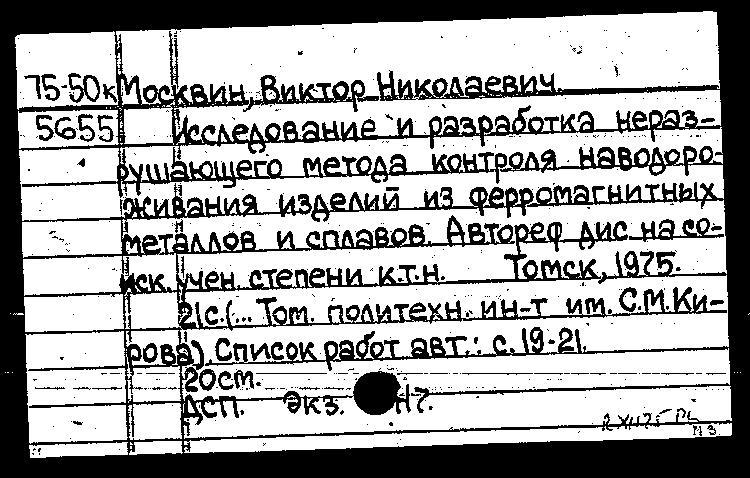 75-50к Москвин, Виктор Николаевич.
5655 Исследование и разработка нераз-
рушающего метода контроля наводоро-
живания изделий из ферромагнитных
металлов и сплавов. Автореф дис. на со-
иск. учен. степени к.т.н. Томск, 1975.
21с.(... Том. политехн. ин-т им. С.М.Ки-
рова). Список работ авт.: с. 19-21.
20см.
ДСП. Экз. 47.